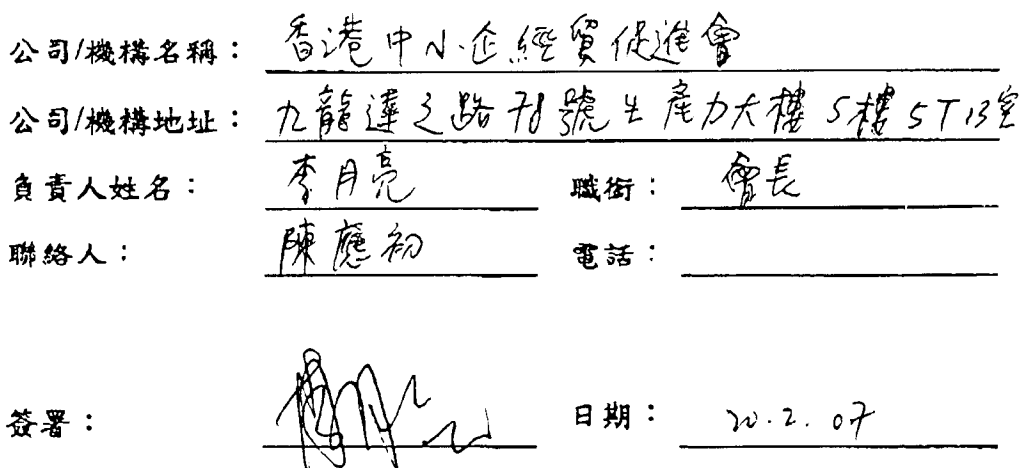 公司/機構名稱： 香港中小企經貿促進會
公司/機構地址： 九龍達之路78號生產力大樓5樓5T13室
負責人姓名： 李月亮 職銜： 會長
聯絡人： 陳應初 電話：
簽署： 日期： 20.2.07